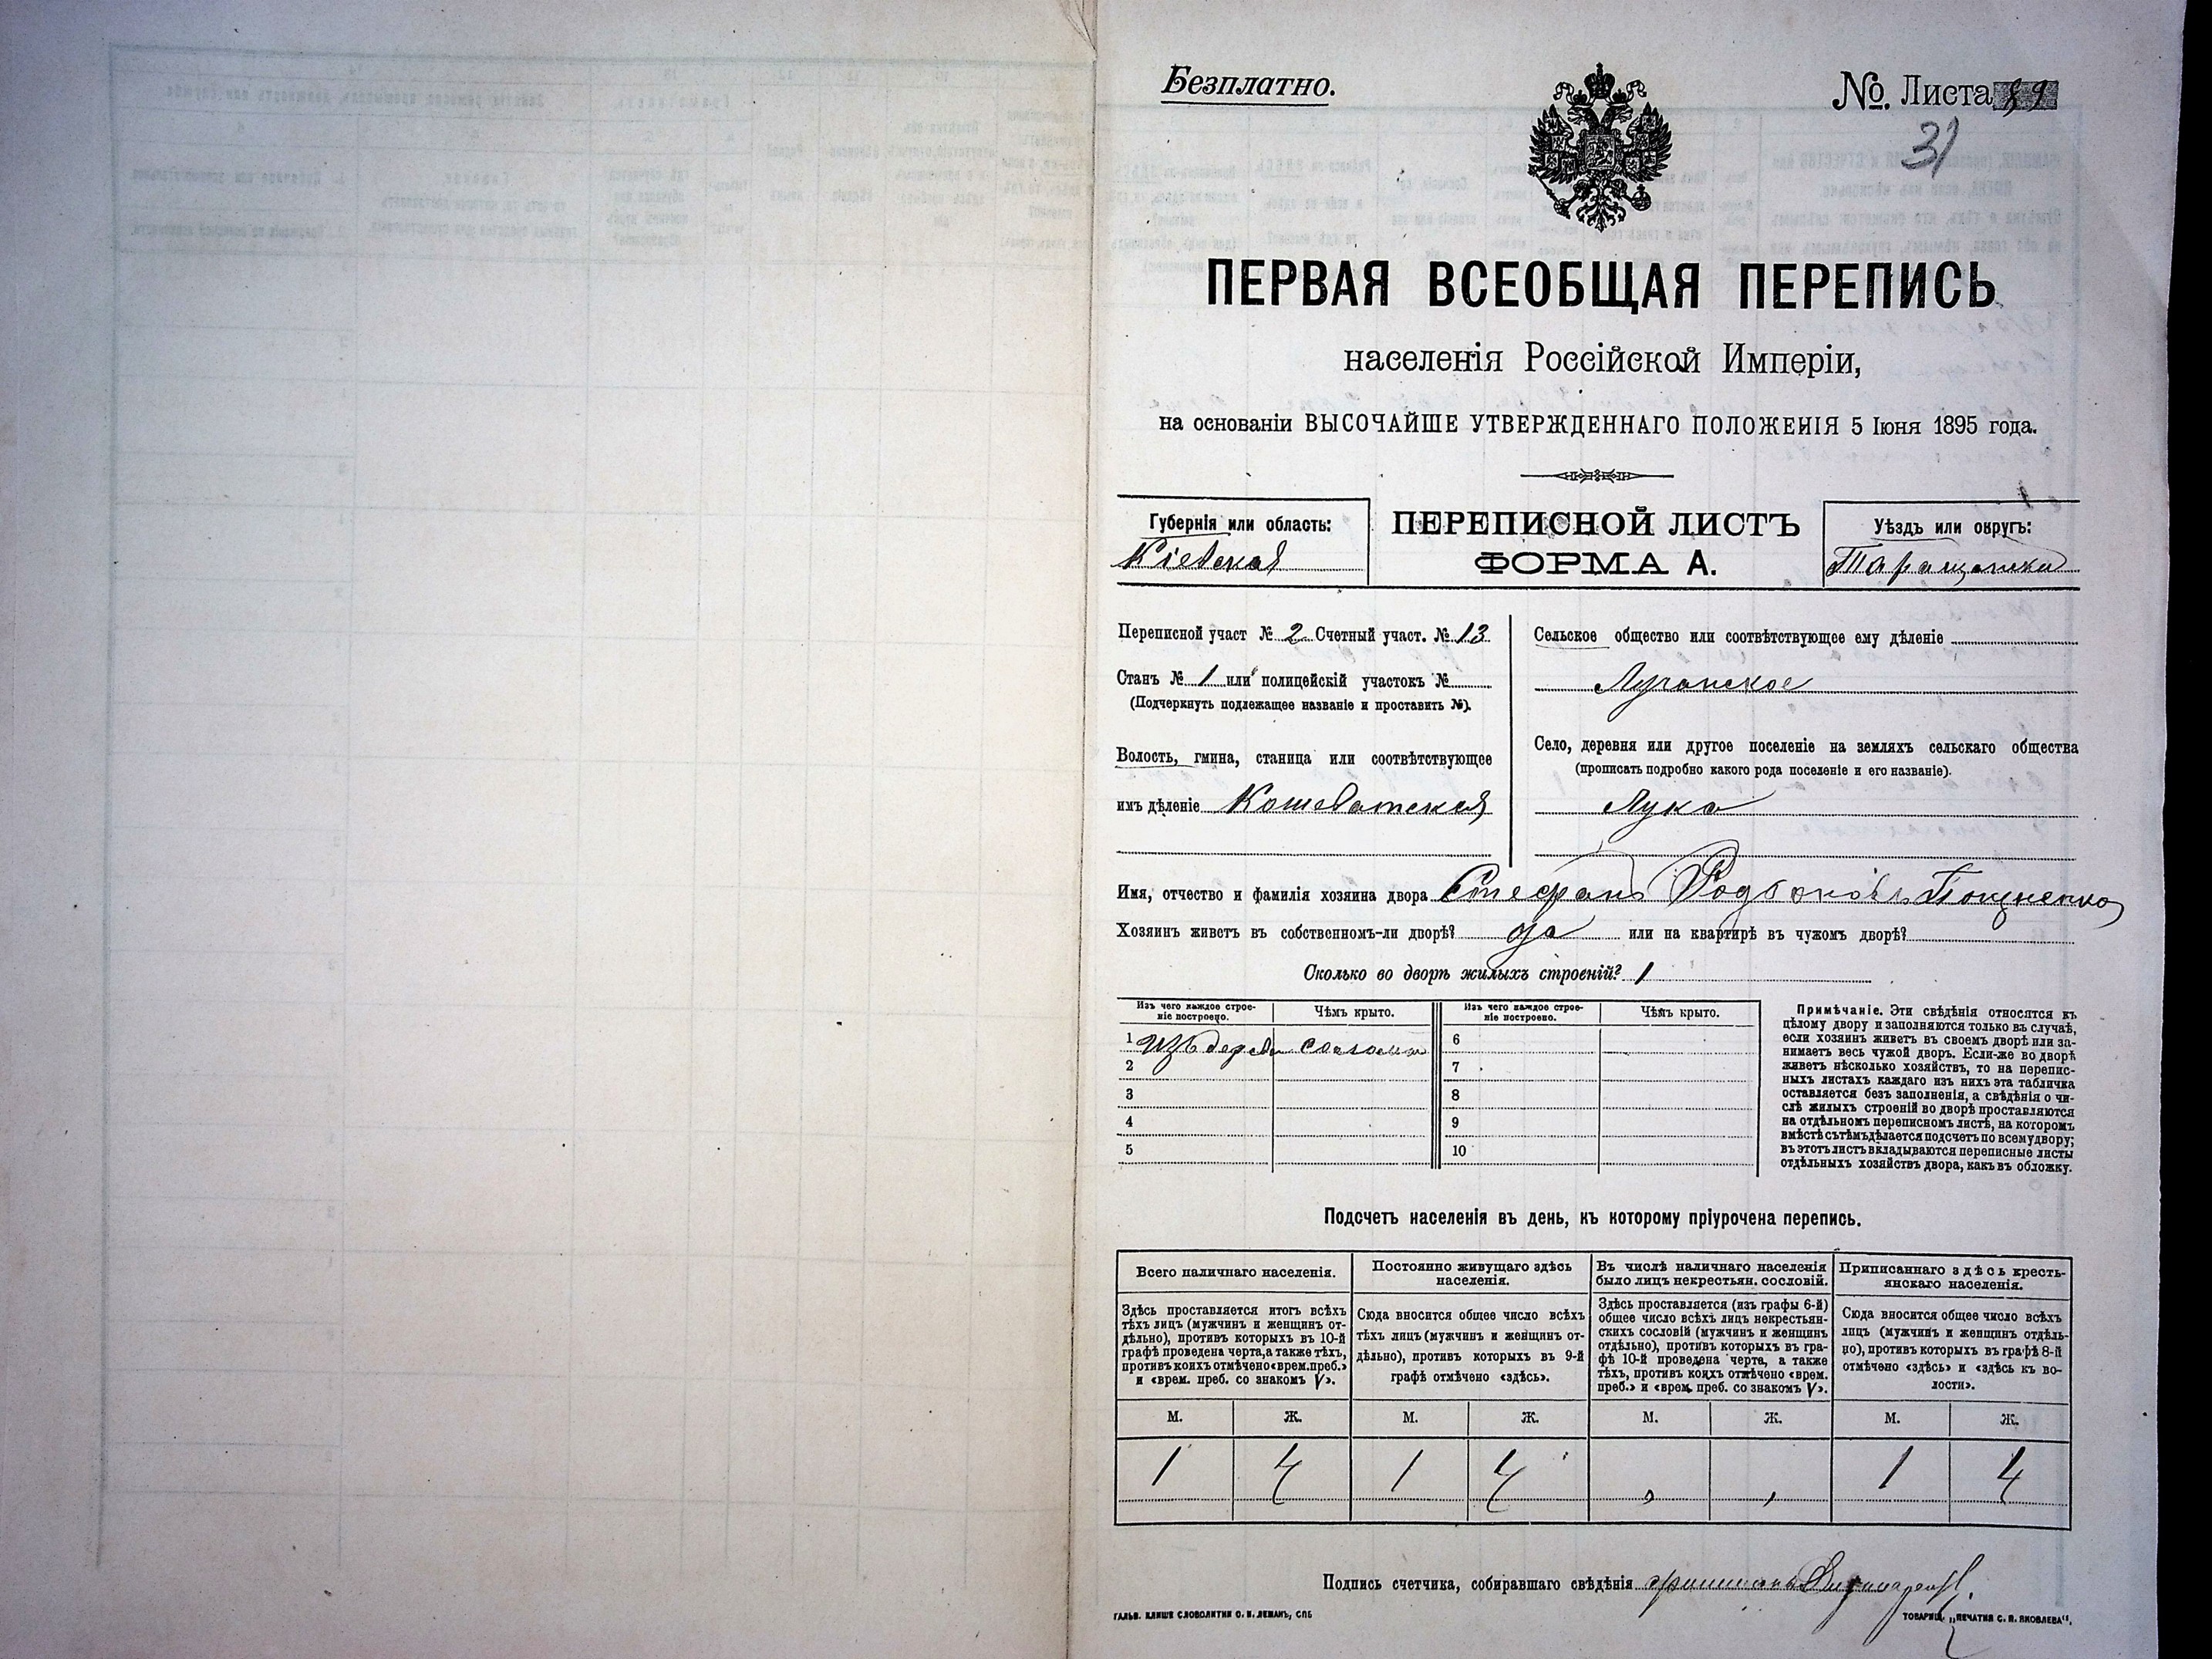 Безплатно.
№. Листа 89
31
ПЕРВАЯ ВСЕОБЩАЯ ПЕРЕПИСЬ
населенія Россійской Имперіи,
на основаніи ВЫСОЧАЙШЕ УТВЕРЖДЕННАГО ПОЛОЖЕНІЯ 5 Іюня 1895 года.
Губернія или область:
Кіевская
ПЕРЕПИСНОЙ ЛИСТЪ
ФОРМА А.
Уѣздъ или округъ:
Таращанскій
Переписной участ № 2 Счетный участ. № 13
Станъ № 1 или полицейскій участокъ №
(Подчеркнуть подлежащее названіе и проставить №).
Волость, гмина, станица или соотвѣтствующее
имъ дѣленіе Кошеватская
Сельское общество или соотвѣтствующее ему дѣленіе
Луганское
Село, деревня или другое поселеніе на земляхъ сельскаго общества
(прописать подробно какого рода поселеніе и его названіе).
Лука
Имя, отчество и фамилія хозяина двора Стефанъ
Хозяинъ живетъ въ собственномъ-ли дворѣ? да или на квартирѣ въ чужомъ дворѣ?
Сколько во дворѣ жилыхъ строеній? 1
Изъ чего каждое строе-
ніе построено.
Чѣмъ крыто.
Изъ чего каждое строе-
ніе построено.
Чѣмъ крыто.
1 Изъ дерева соломой 6
2 7
3 8
4 9
5 10
Примѣчаніе. Эти свѣдѣнія относятся къ
цѣлому двору и заполняются только въ случаѣ,
если хозяинъ живетъ въ своемъ дворѣ или за-
нимаетъ весь чужой дворъ. Если-же во дворѣ
живетъ нѣсколько хозяйствъ, то на перепис-
ныхъ листахъ каждаго изъ нихъ эта табличка
оставляется безъ заполненія, а свѣдѣнія о чи-
слѣ жилыхъ строеній во дворѣ проставляются
на отдѣльномъ переписномъ листѣ, на которомъ
вмѣстѣ съ тѣмъ дѣлается подсчетъ по всему двору;
въ этотъ листъ вкладываются переписные листы
отдѣльныхъ хозяйствъ двора, какъ въ обложку.
Подсчетъ населенія въ день, къ которому пріурочена перепись.
Всего наличнаго населенія.
Здѣсь проставляется итогъ всѣхъ
тѣхъ лицъ (мужчинъ и женщинъ от-
дѣльно), противъ которыхъ въ 10-й
графѣ проведена черта, а также тѣхъ,
противъ коихъ отмѣчено «врем. преб.»
и «врем. преб. со знакомъ V».
Постоянно живущаго здѣсь
населенія.
Сюда вносится общее число всѣхъ
тѣхъ лицъ (мужчинъ и женщинъ от-
дѣльно), противъ которыхъ въ 9-й
графѣ отмѣчено «здѣсь».
Въ числѣ наличнаго населенія
было лицъ некрестьян. сословій.
Здѣсь проставляется (изъ графы 6-й)
общее число всѣхъ лицъ некрестьян-
скихъ сословій (мужчинъ и женщинъ
отдѣльно), противъ которыхъ въ гра-
фѣ 10-й проведена черта, а также
тѣхъ, противъ коихъ отмѣчено «врем.
преб.» и «врем. преб. со знакомъ V».
Приписаннаго здѣсь кресть-
янскаго населенія.
Сюда вносится общее число всѣхъ
лицъ (мужчинъ и женщинъ отдѣль-
но), противъ которыхъ въ графѣ 8-й
отмѣчено «здѣсь» и «здѣсь къ во-
лости».
М. Ж. М. Ж. М. Ж. М. Ж.
1 4 1 4 „ „ 1 4
Подпись счетчика, собиравшаго свѣдѣнія
ГАЛЬВ. КЛИШЕ СЛОВОЛИТНИ О. И. ЛЕМАНЪ, СПБ
ТОВАРИЩ. „ПЕЧАТНЯ С. П. ЯКОВЛЕВА“,